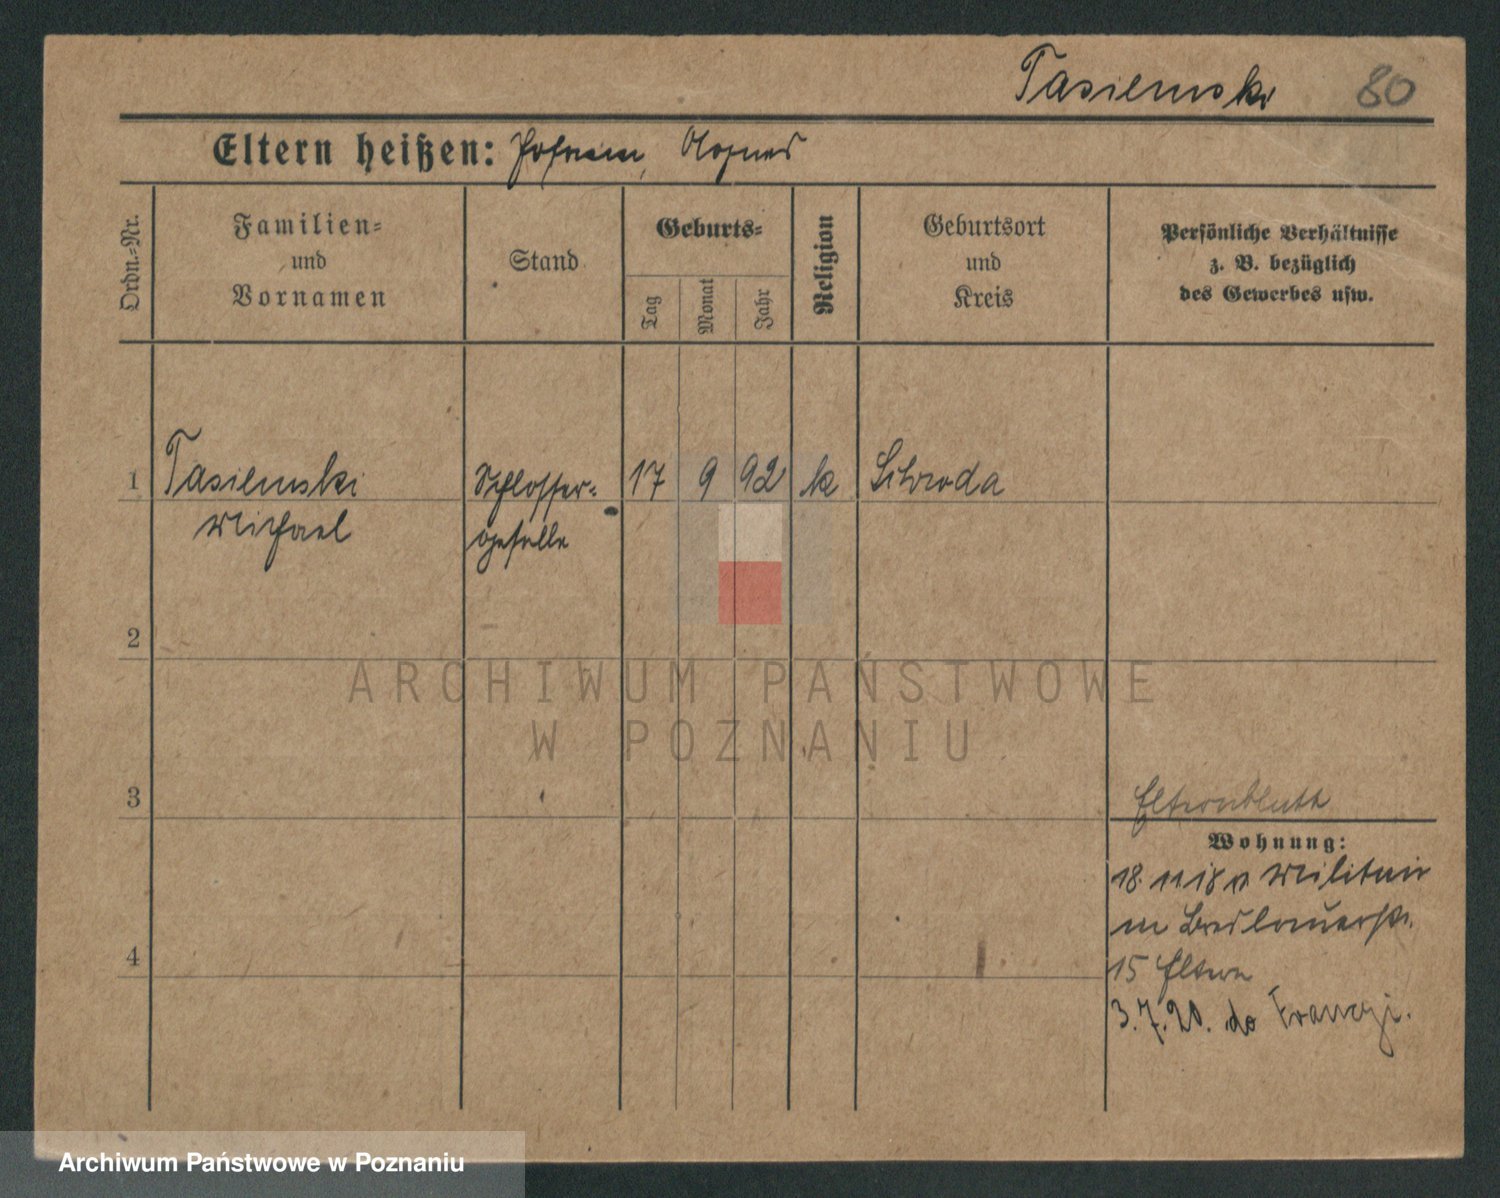 Tasiemski 80
Eltern heißen: Johann, Agnes
Ordn.-Nr.
Familien-
und
Vornamen
Stand
Geburts-
Tag
Monat
Jahr
Religion
Geburtsort
und
Kreis
Persönliche Verhältnisse
z. B. bezüglich
des Gewerbes usw.
1 Tasiemski Schlosser- 17 9 92 k Schroda
Michael geselle
2
ARCHIWUM PAŃSTWOWE
W POZNANIU
3
Wohnung:
18. 11 18 v Militair
15 Eltern
3.7.20. do Francji.
4
Archiwum Państwowe w Poznaniu